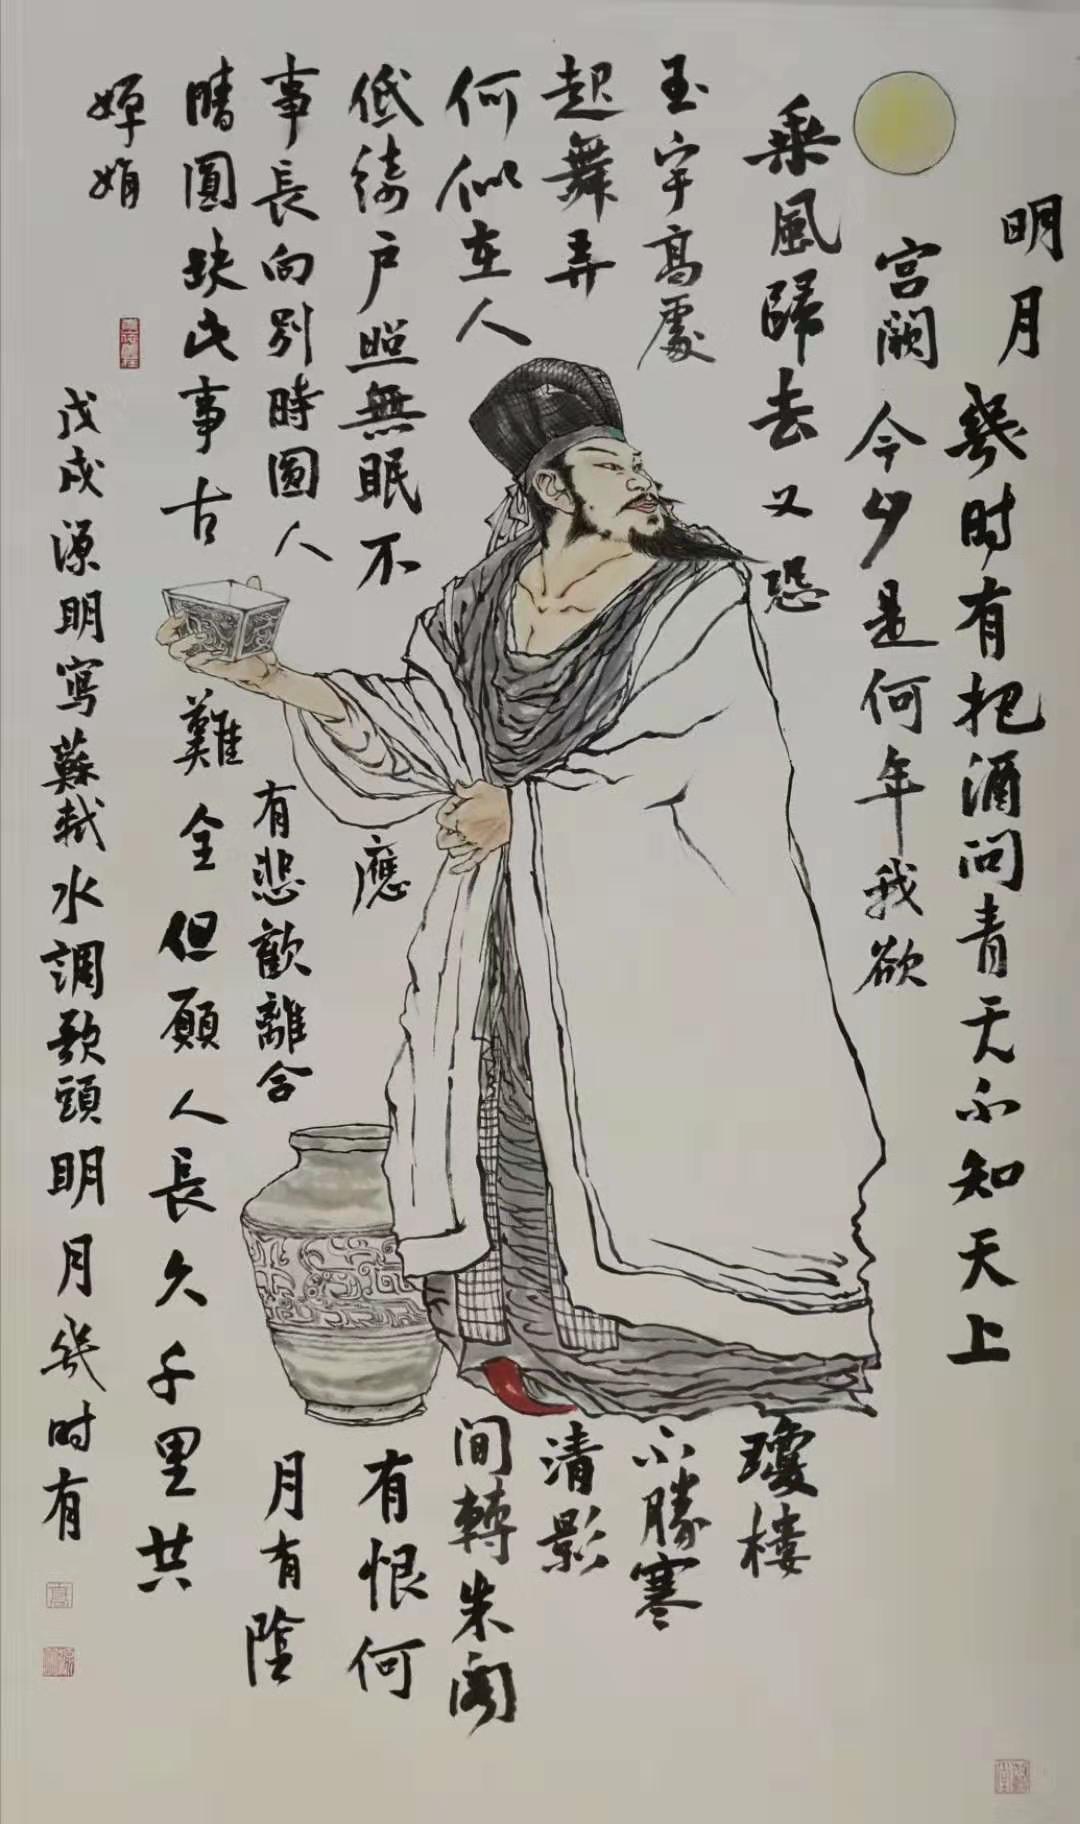 明月
幾时有把酒问青天不知天上
宫阙今夕是何年我欲
乘風歸去又恐瓊楼
玉宇高處不勝寒
起舞弄清影
何似在人间轉朱阁
低绮户照無眠不應有恨何
事長向别時圆人有悲歡離合月有陰
晴圓缺此事古難全但願人長久千里共
婵娟
戊戌源明寫蘇軾水調歌頭明月幾时有